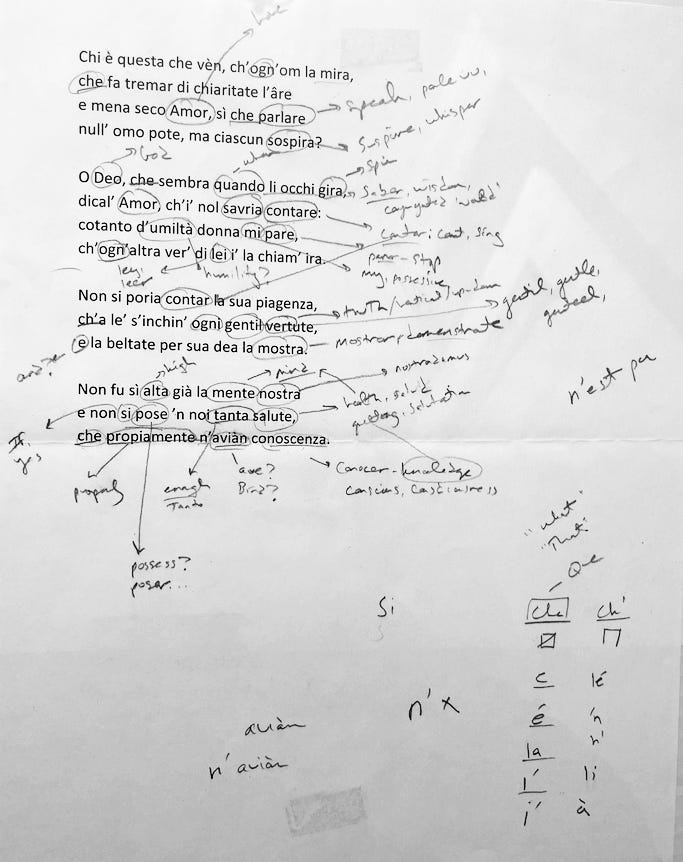 love
Chi è questa che vèn, ch'ogn'om la mira,
che fa tremar di chiaritate l'âre
e mena seco Amor, sì che parlare
speak, palevu,
null' omo pote, ma ciascun sospira?
suspire, whisper
God
when
spin
O Deo, che sembra quando li occhi gira,
Saber, wisdom,
conjugated 'would'
dical' Amor, ch'i' nol savria contare:
cantar: cant, sing
cotanto d'umiltà donna mi pare,
parar - stop
my, possessive
ch'ogn'altra ver' di lei i' la chiam' ira.
ley,
leer
humility?
Non si poria contar la sua piagenza,
truth/vertical/up-down
gentil, gentle,
genteel,
ch'a le' s'inchin' ogni gentil vertute,
Mostrar, demonstrate
e la beltate per sua dea la mostra.
and?
high
mind
nostradamus
Non fu sì alta già la mente nostra
health, salud
greeting, salutation
e non si pose 'n noi tanta salute,
If,
yes
che propiamente n'aviàn conoscenza.
n'est pa
properly
enough
Tando
ave?
Bird?
Conocer - knowledge
conscious, consciousness
possess?
poser...
"what"
"That"
Que
Si
che ch'
c lé
é 'n
la n'
l' li
i' à
n' x
aviàn
n' aviàn